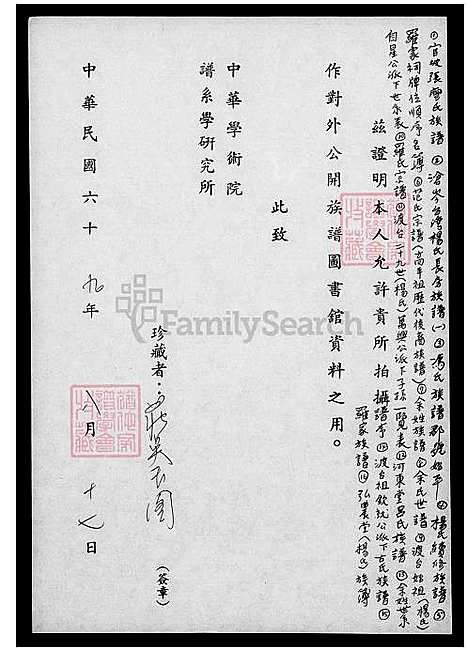 ①官坡張廖氏族譜②滄岑台灣楊氏長分族譜(一)③馮氏族譜郡號始平④楊氏續修族譜⑤
羅家祠牌位順序名簿⑥范氏宗譜(高平祖歷代後裔族譜)⑦余姓族譜⑧余氏世譜⑨渡台始祖(楊氏)
自星公派下世系表⑩羅氏宗譜⑪渡台二十九世(楊氏)萬興公派下子孫一覽表⑫河東堂呂氏族譜⑬余姓世系
譜⑭渡台祖欽沅公派下古氏族譜⑮
羅家族譜⑯弘農堂(楊氏)族簿
茲證明本人允許貴所拍攝
作對外公開族譜圖書館資料之用。
此致
中華學術院
譜系學研究所
珍藏者：
(簽章)
中華民國六十九年八月十七日
FamilySearch